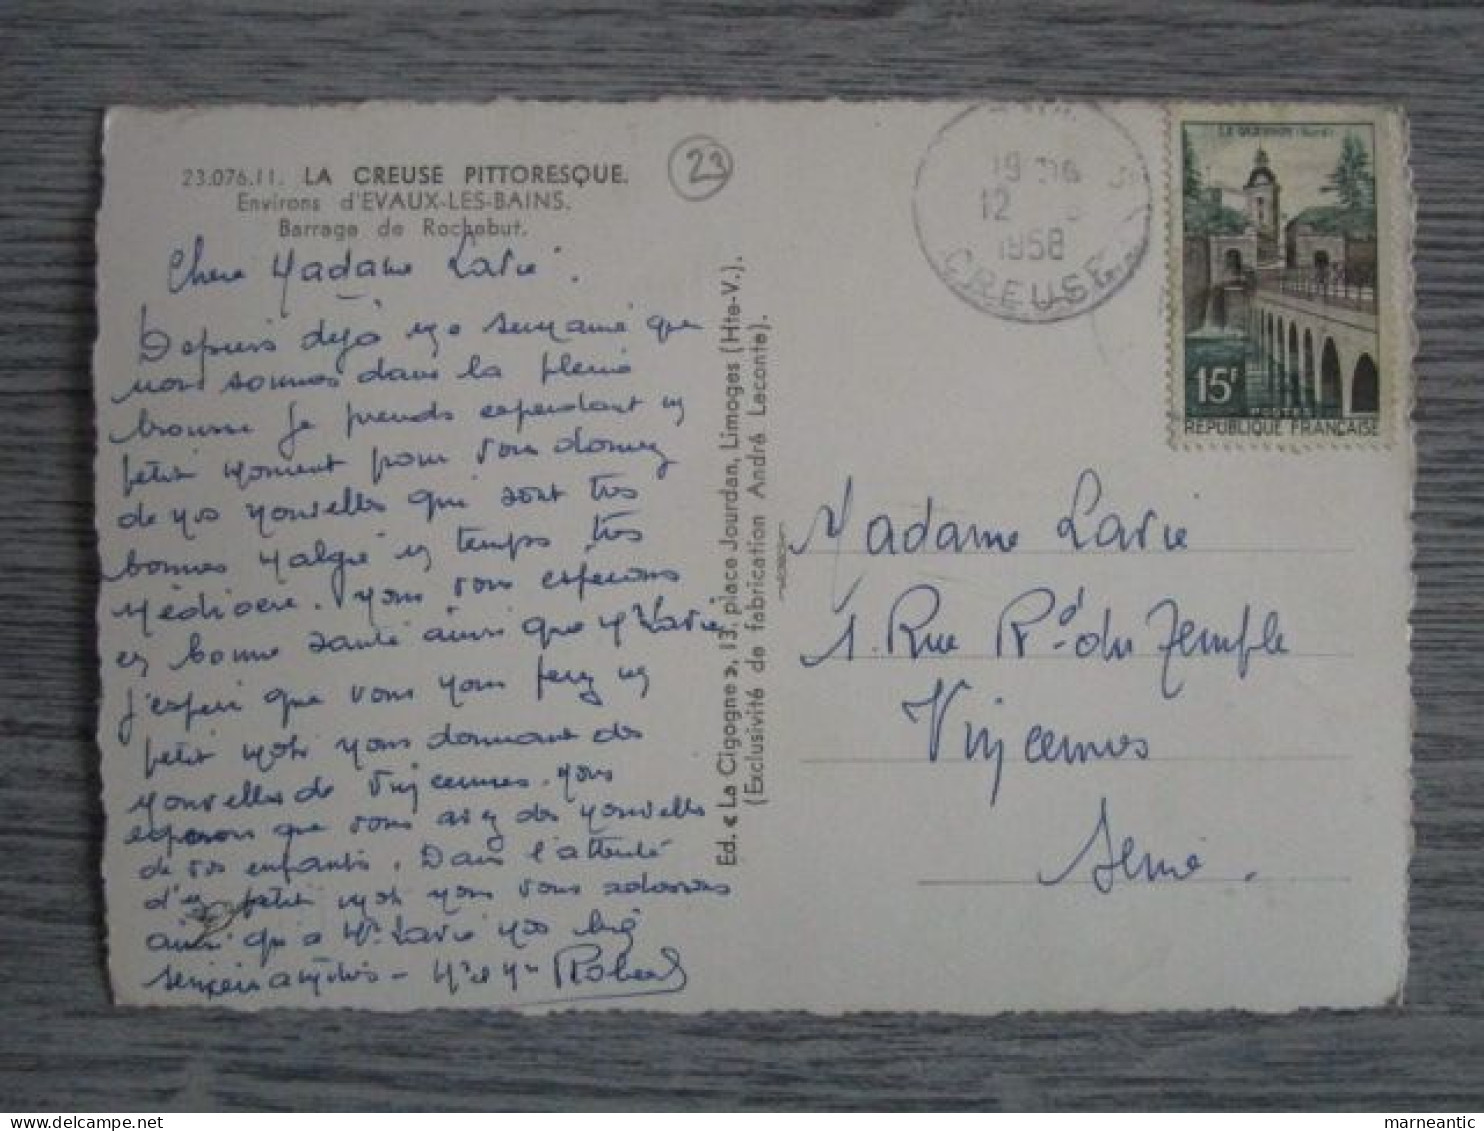 23.076.11. LA CREUSE PITTORESQUE.
Environs d'EVAUX-LES-BAINS.
Barrage de Rochebut.
23
Chère Madame Lavie.
Depuis déjà une semaine que
nous sommes dans la pleine
brousse je prends cependant un
petit moment pour vous donner
de nos nouvelles qui sont très
bonnes malgré un temps très
médiocre. Nous vous espérons
en bonne santé ainsi que Mr Lavie
j'espère que vous nous ferez un
petit mot nous donnant des
nouvelles de Vincennes. Nous
espérons que vous avez des nouvelles
de vos enfants. Dans l'attente
d'un petit mot nous vous adressons
ainsi qu'à Mr Lavie nos
amitiés - Mr et Mme Robert
Ed. « La Cigogne », 13, place Jourdan, Limoges (Hte-V.).
(Exclusivité de fabrication André Leconte).
19
12
1958
CREUSE
LE QUESNOY (Nord)
15F
REPUBLIQUE FRANÇAISE
Madame Lavie
1. Rue Rd du Temple
Vincennes
Seine.
marneantic